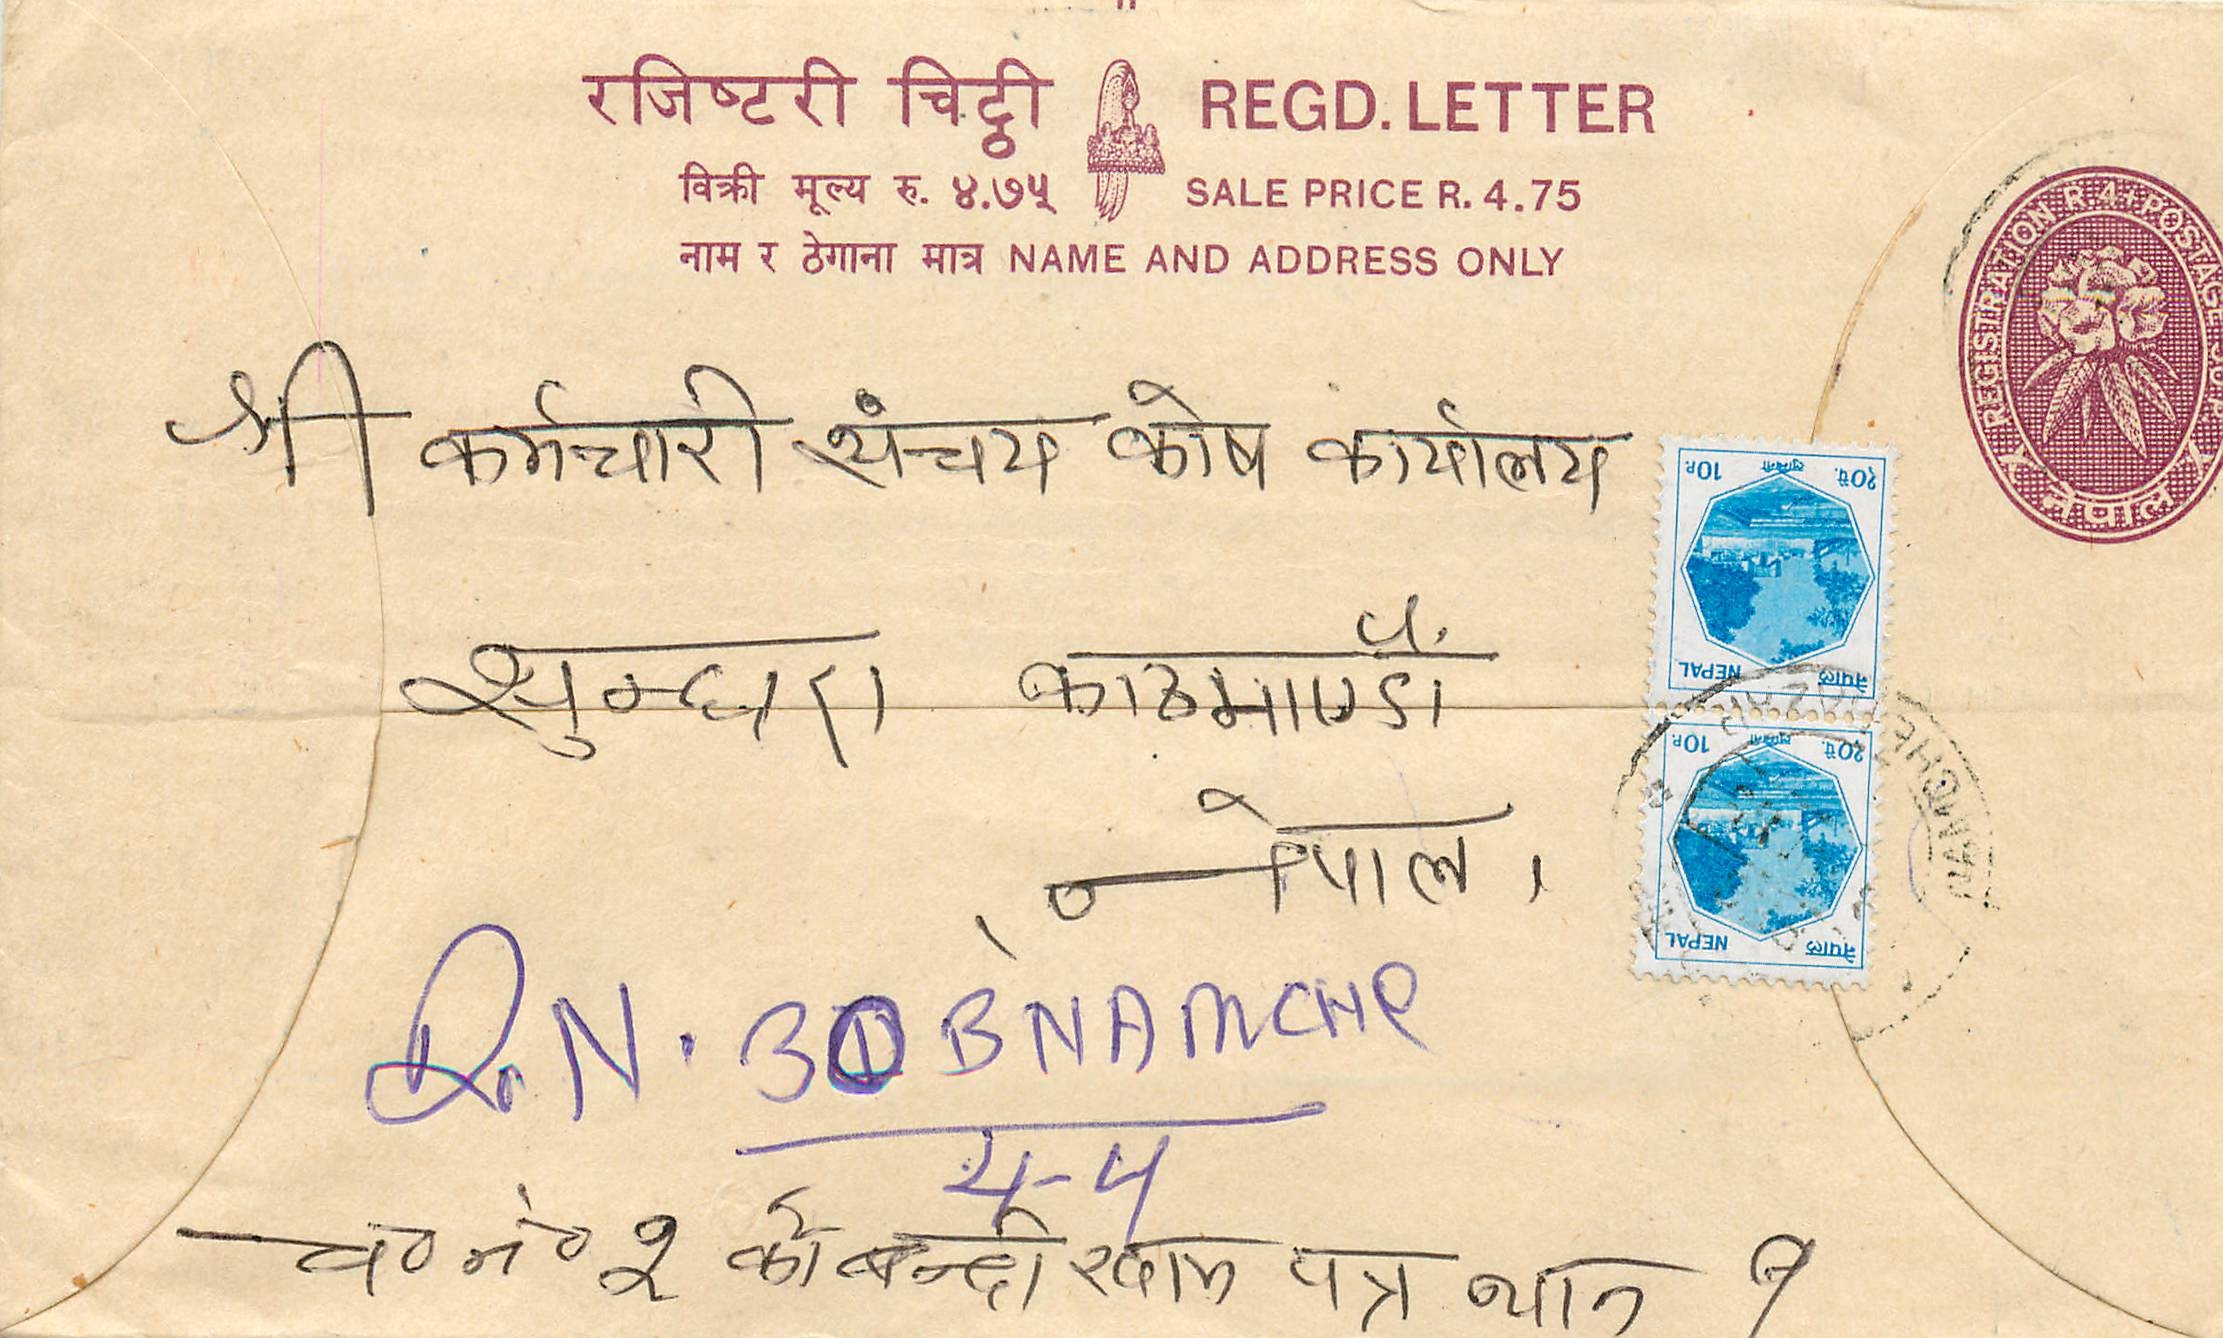 रजिष्टरी चिट्ठी REGD. LETTER
विक्री मूल्य रु. ४.७५ SALE PRICE R. 4.75
नाम र ठेगाना मात्र NAME AND ADDRESS ONLY
REGISTRATION R 4 POSTAGE
नेपाल
श्री कर्मचारी संचय कोष कार्यालय
सुन्धारा काठमाण्डौं
नेपाल ।
१०पै. 10P
नेपाल NEPAL
१०पै. 10P
नेपाल NEPAL
NAMCHE BAZAR
R.N. 30 B NAMCHE
५-५
च० नं० १ को बन्दी खाम पत्र थान १